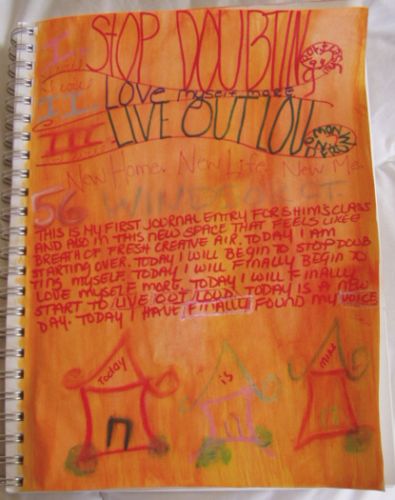 I. STOP DOUBTING
II. Love myself more
III. LIVE OUT LOUD
New Home. New Life. New Me.
56 WINDS
THIS IS MY FIRST JOURNAL ENTRY FOR SHIM'S CLASS
AND ALSO IN THIS NEW SPACE THAT FEELS LIKE
BREATH OF FRESH CREATIVE AIR. TODAY I AM
STARTING OVER. TODAY I WILL BEGIN TO STOP DOUB
TING MYSELF. TODAY I WILL FINALLY BEGIN TO
LOVE MYSELF MORE. TODAY I WILL FINALLY
START TO LIVE OUT LOUD. TODAY IS A NEW
DAY. TODAY I HAVE FINALLY FOUND MY VOICE
Today
is
mine